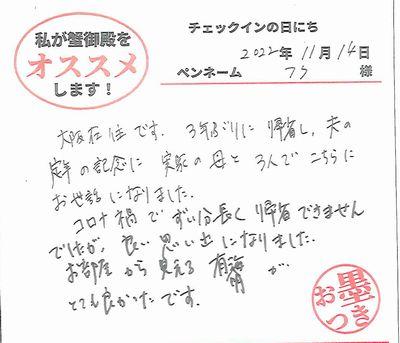 私が蟹御殿を
オススメ
します！
チェックインの日にち
2022年 11月 14日
ペンネーム つう 様
大阪在住です。3年ぶりに帰省し、夫の
定年の記念に 実家の母と3人でこちらに
お世話になりました。
コロナ禍で ずい分長く帰省できません
でしたが、良い思い出になりました。
お部屋から見える 有明海が
とても良かったです。
お墨
つき